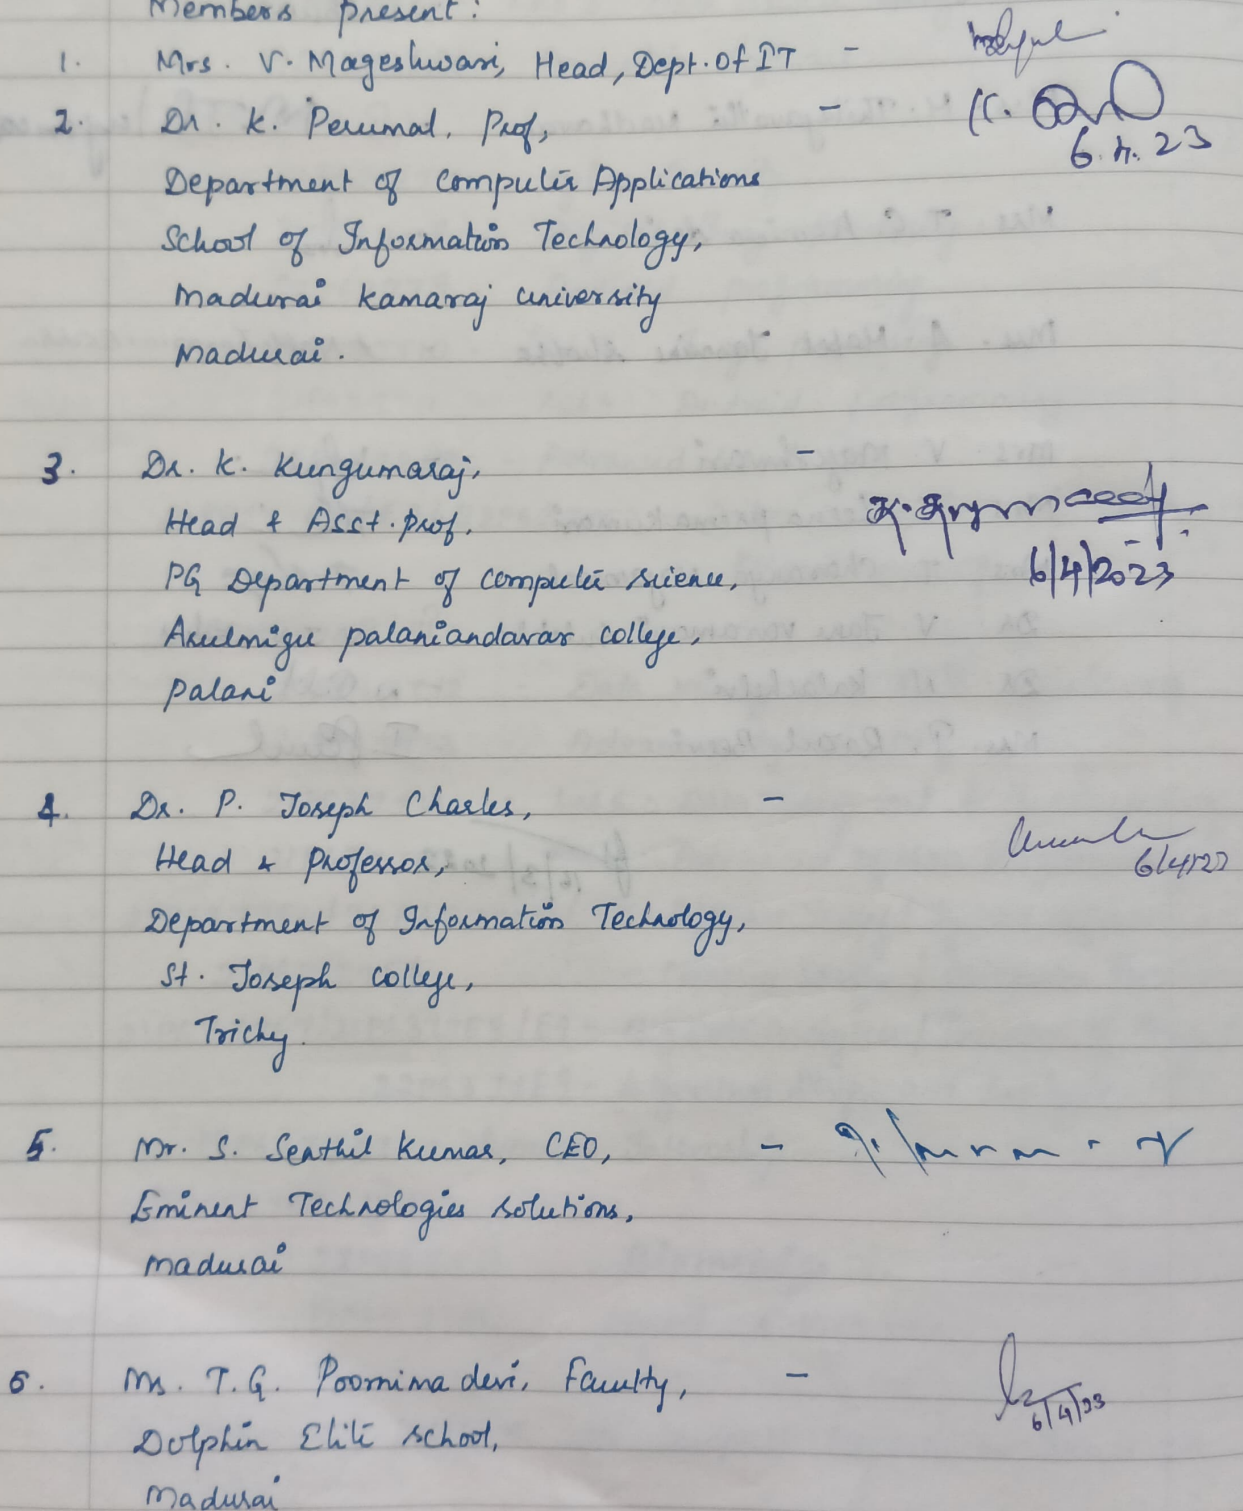 Members present:
1. Mrs. V. Mageshwari, Head, Dept. of IT -
2. Dr. K. Perumal, Prof, -
K.
6.4.23
Department of Computer Applications
School of Information Technology,
Madurai Kamaraj University
Madurai.
3. Dr. K. Kungumaraj, -
Head & Asst. Prof.
6/4/2023
PG Department of Computer Science,
Arulmigu Palaniandavar College,
Palani
4. Dr. P. Joseph Charles, -
Head & Professor,
6/4/23
Department of Information Technology,
St. Joseph College,
Trichy.
5. Mr. S. Senthil Kumar, CEO, -
Eminent Technologies Solutions,
Madurai
6. Ms. T.G. Poornima devi, Faculty, -
6/4/23
Dolphin Elite School,
Madurai